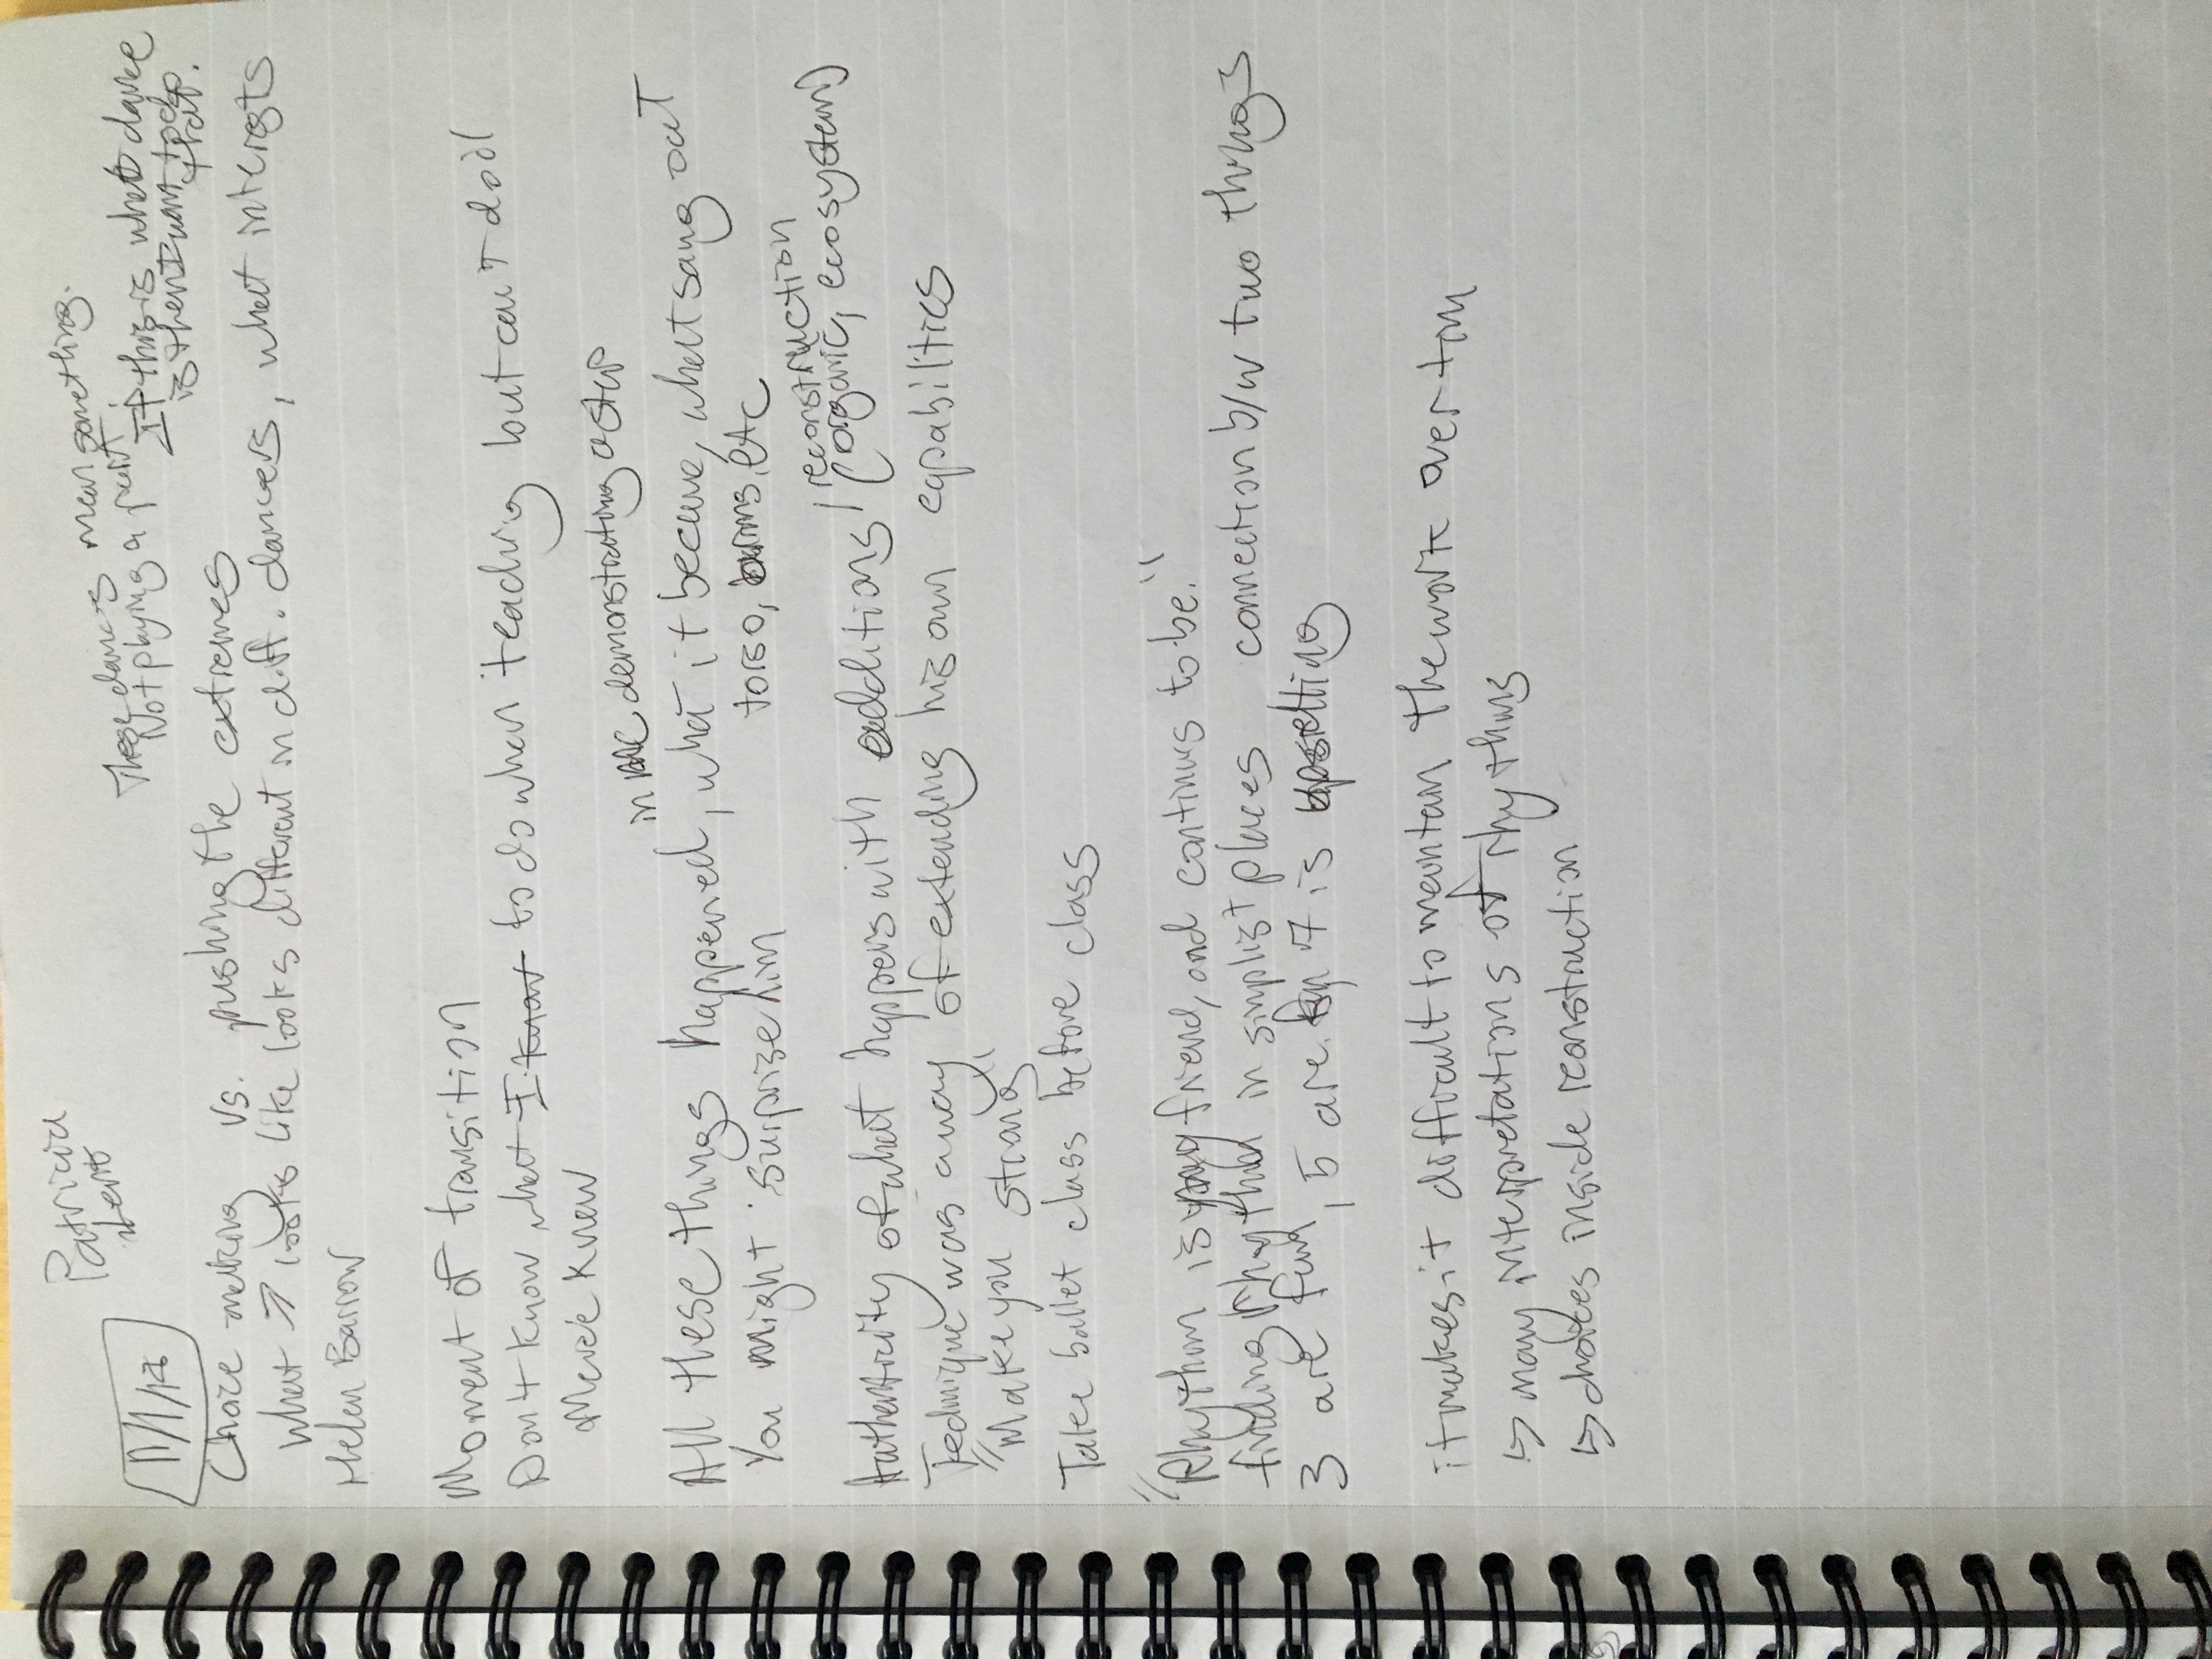 Patricia
Lent
11/1/17
These dances mean something.
Not playing a part
If this is what dance
is then I want to do
that.
Choice making vs. pushing the extremes
What → looks like looks different in diff. dances, what interests
Helen Barrow
Moment of transition
Don't know what I know to do when teaching but can't do it
Merce knew
in demonstrating a step
All these things happened, what it became, what sang out
You might surprise him
torso, arms, etc
Authenticity of what happens with additions / reconstruction
(organic, ecosystem)
Technique was a way of extending his own capabilities
"Make you strong"
Take ballet class before class
"Rhythm is your friend, and continues to be."
finding rhythm in simplist places connection b/w two things
3 are fun, 5 are fun 7 is upsetting
it makes it difficult to maintain the work over time
↳ many interpretations of rhythms
↳ choices inside reconstruction